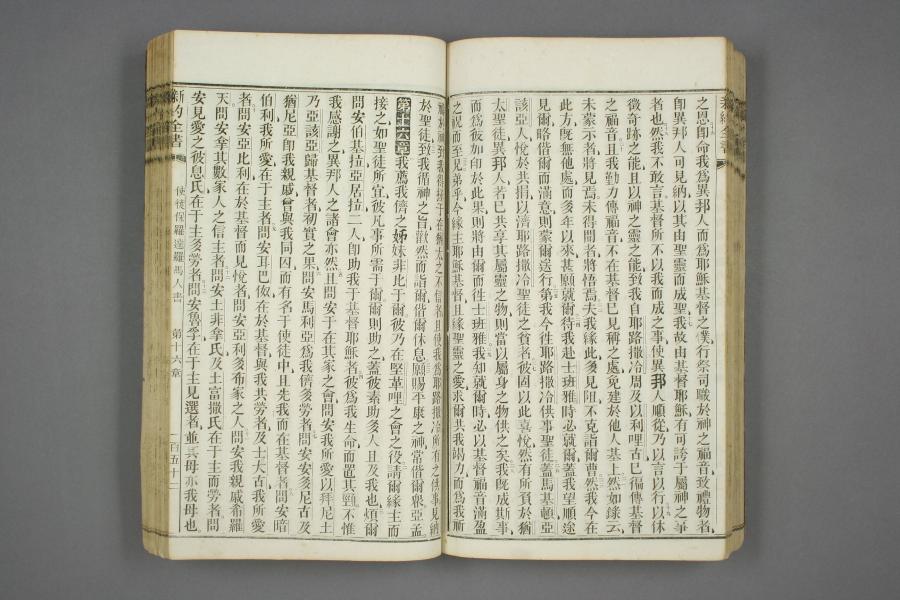 之恩卽命我爲異邦人而爲耶穌基督之僕行祭司職於神之福音致禮物者
卽異邦人可見納以其由聖靈而成聖我故由基督耶穌有可誇于屬神之事
者也然我不敢言基督所不以我而成之事使異邦人順從乃以言以行以休
徵奇跡之能且以神之靈之能致我自耶路撒冷周及以利哩古已徧傳基督
之福音且我勤力傳福音不在基督已見稱之處免建於他人基上然如錄云
未蒙示者將見焉未得聞者將悟焉夫我緣此多見阻不克詣爾曹然我今在
此方旣無他處而多年以來甚願就爾待我赴士班雅時必就爾蓋我望順途
見爾略偕爾而滿意則蒙爾送行第我今往耶路撒冷供事聖徒蓋馬基頓亞
該亞人悅於共捐以濟耶路撒冷聖徒之貧者彼固以此喜悅然有所負於猶
太聖徒異邦人者已共享其屬靈之物則當以屬身之物供之矣我旣成斯事
而爲彼如印於此果則將由爾而往士班雅我知就爾時必以基督福音滿盈
之祝而至兄弟乎今緣主耶穌基督且緣聖靈之愛求爾共我竭力而爲我祈
於聖徒致我循神之旨歡然而詣爾偕爾休息願賜平康之神常偕爾衆亞孟
第十六章我薦我儕之姊妹非比于爾彼乃在堅革哩之會之役請爾緣主而
接之如聖徒所宜彼凡事所需于爾爾則助之蓋彼素助多人且及我也煩爾
問安伯基拉亞居拉二人卽助我于基督耶穌者彼爲我生命而置其頸不惟
我感謝之異邦人之諸會亦然且問安于在其家之會問安我所愛以拜尼土
乃亞該亞歸基督者初實之果問安馬利亞爲我儕多勞者問安安多尼古及
猶尼亞卽我親戚曾與我同囚而有名于使徒中且先我而在基督者問安暗
伯利我所愛在于主者問安耳巴依在於基督與我共勞者及士大古我所愛
者問安亞比利在於基督而見悅者問安亞利多布家之人問安我親戚希羅
天問安拿其數家人之信主者問安土非拿氏及土富撒氏在于主而勞者問
安見愛之彼息氏在于主多勞者問安魯孚在于主見選者並其母亦我母也
新約全書
使徒保羅達羅馬人書
第十六章
一百五十二